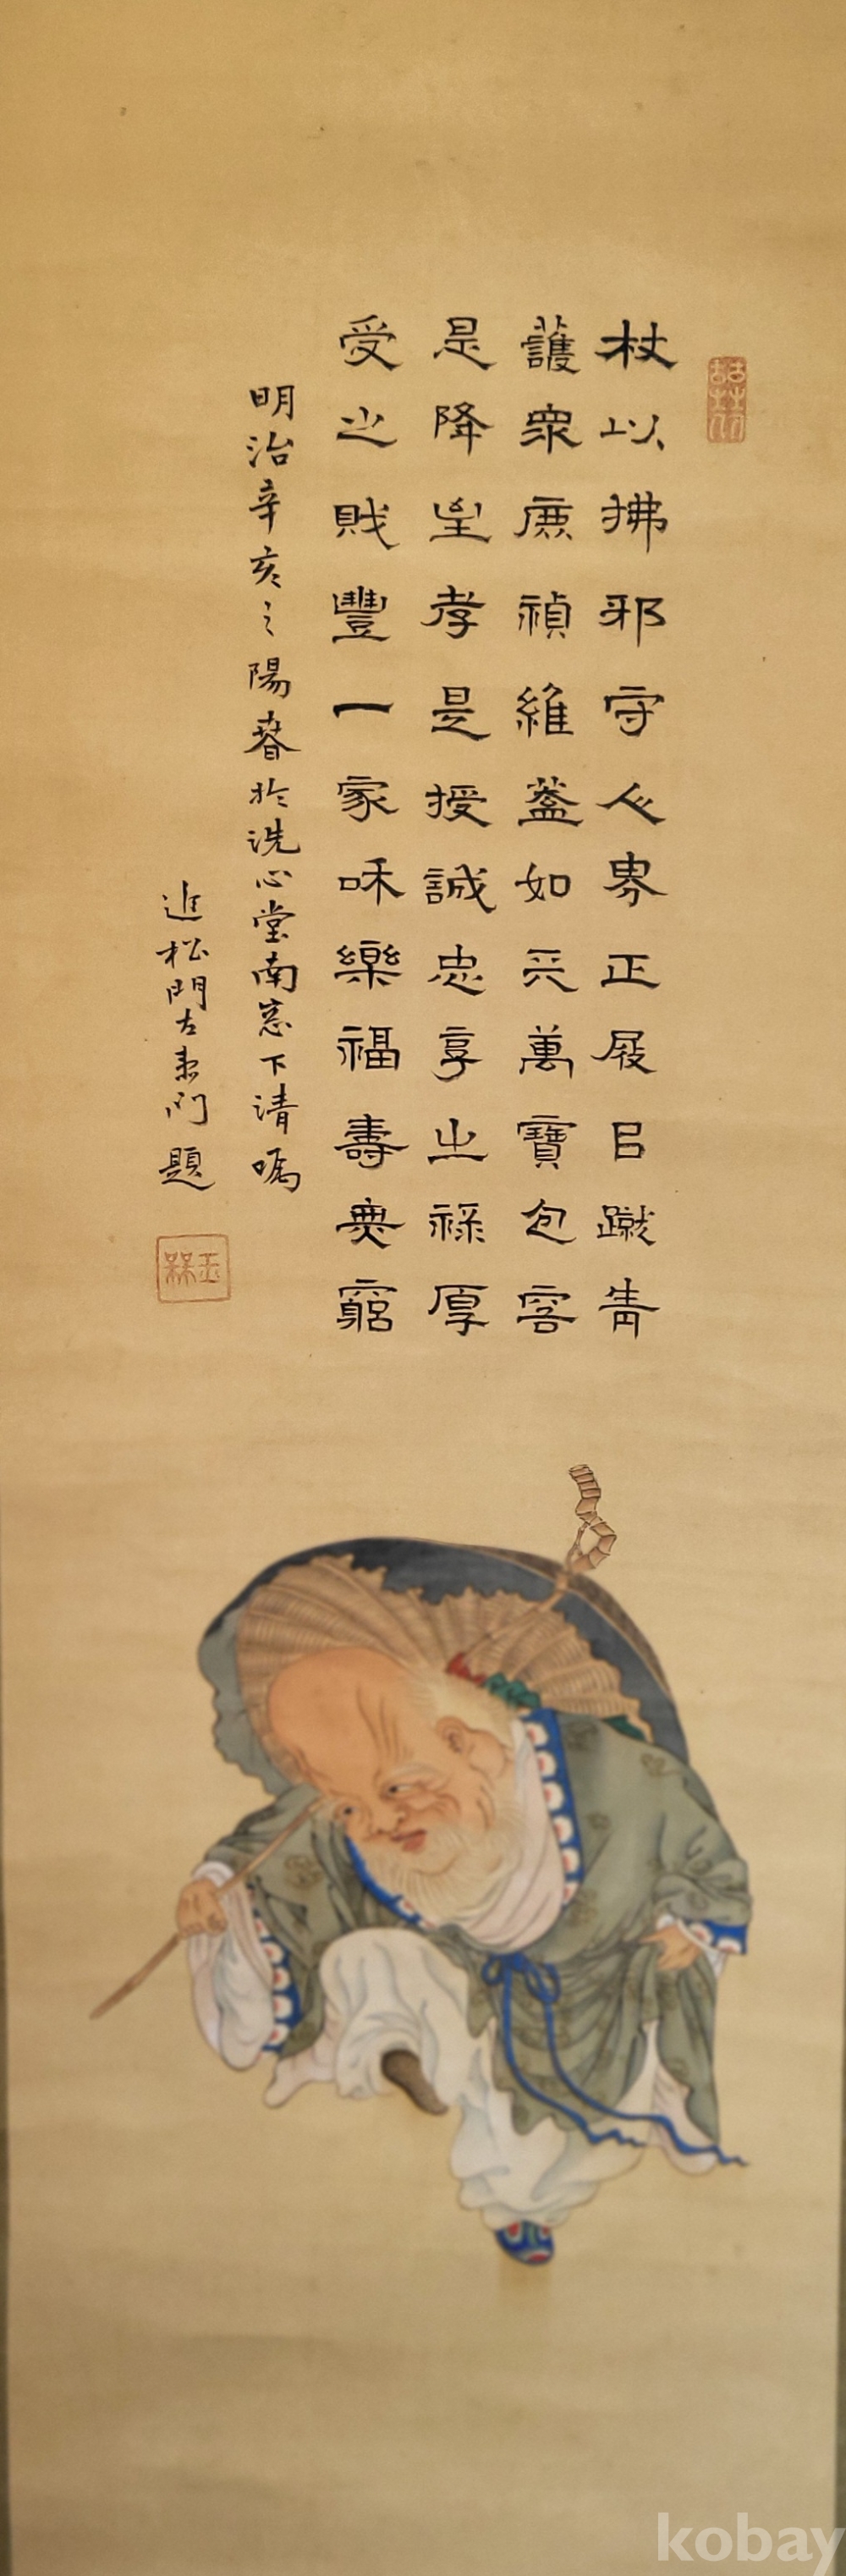 杖以拂邪守人畀正屐以蹴眚
護衆庶禎維蓋如天萬寶包容
是降坐孝是授誠忠享之祿厚
受之賎豐一家和樂福壽無窮
明治辛亥之陽春於洗心堂南窓下清嘱
進松門左衛門題
kobay